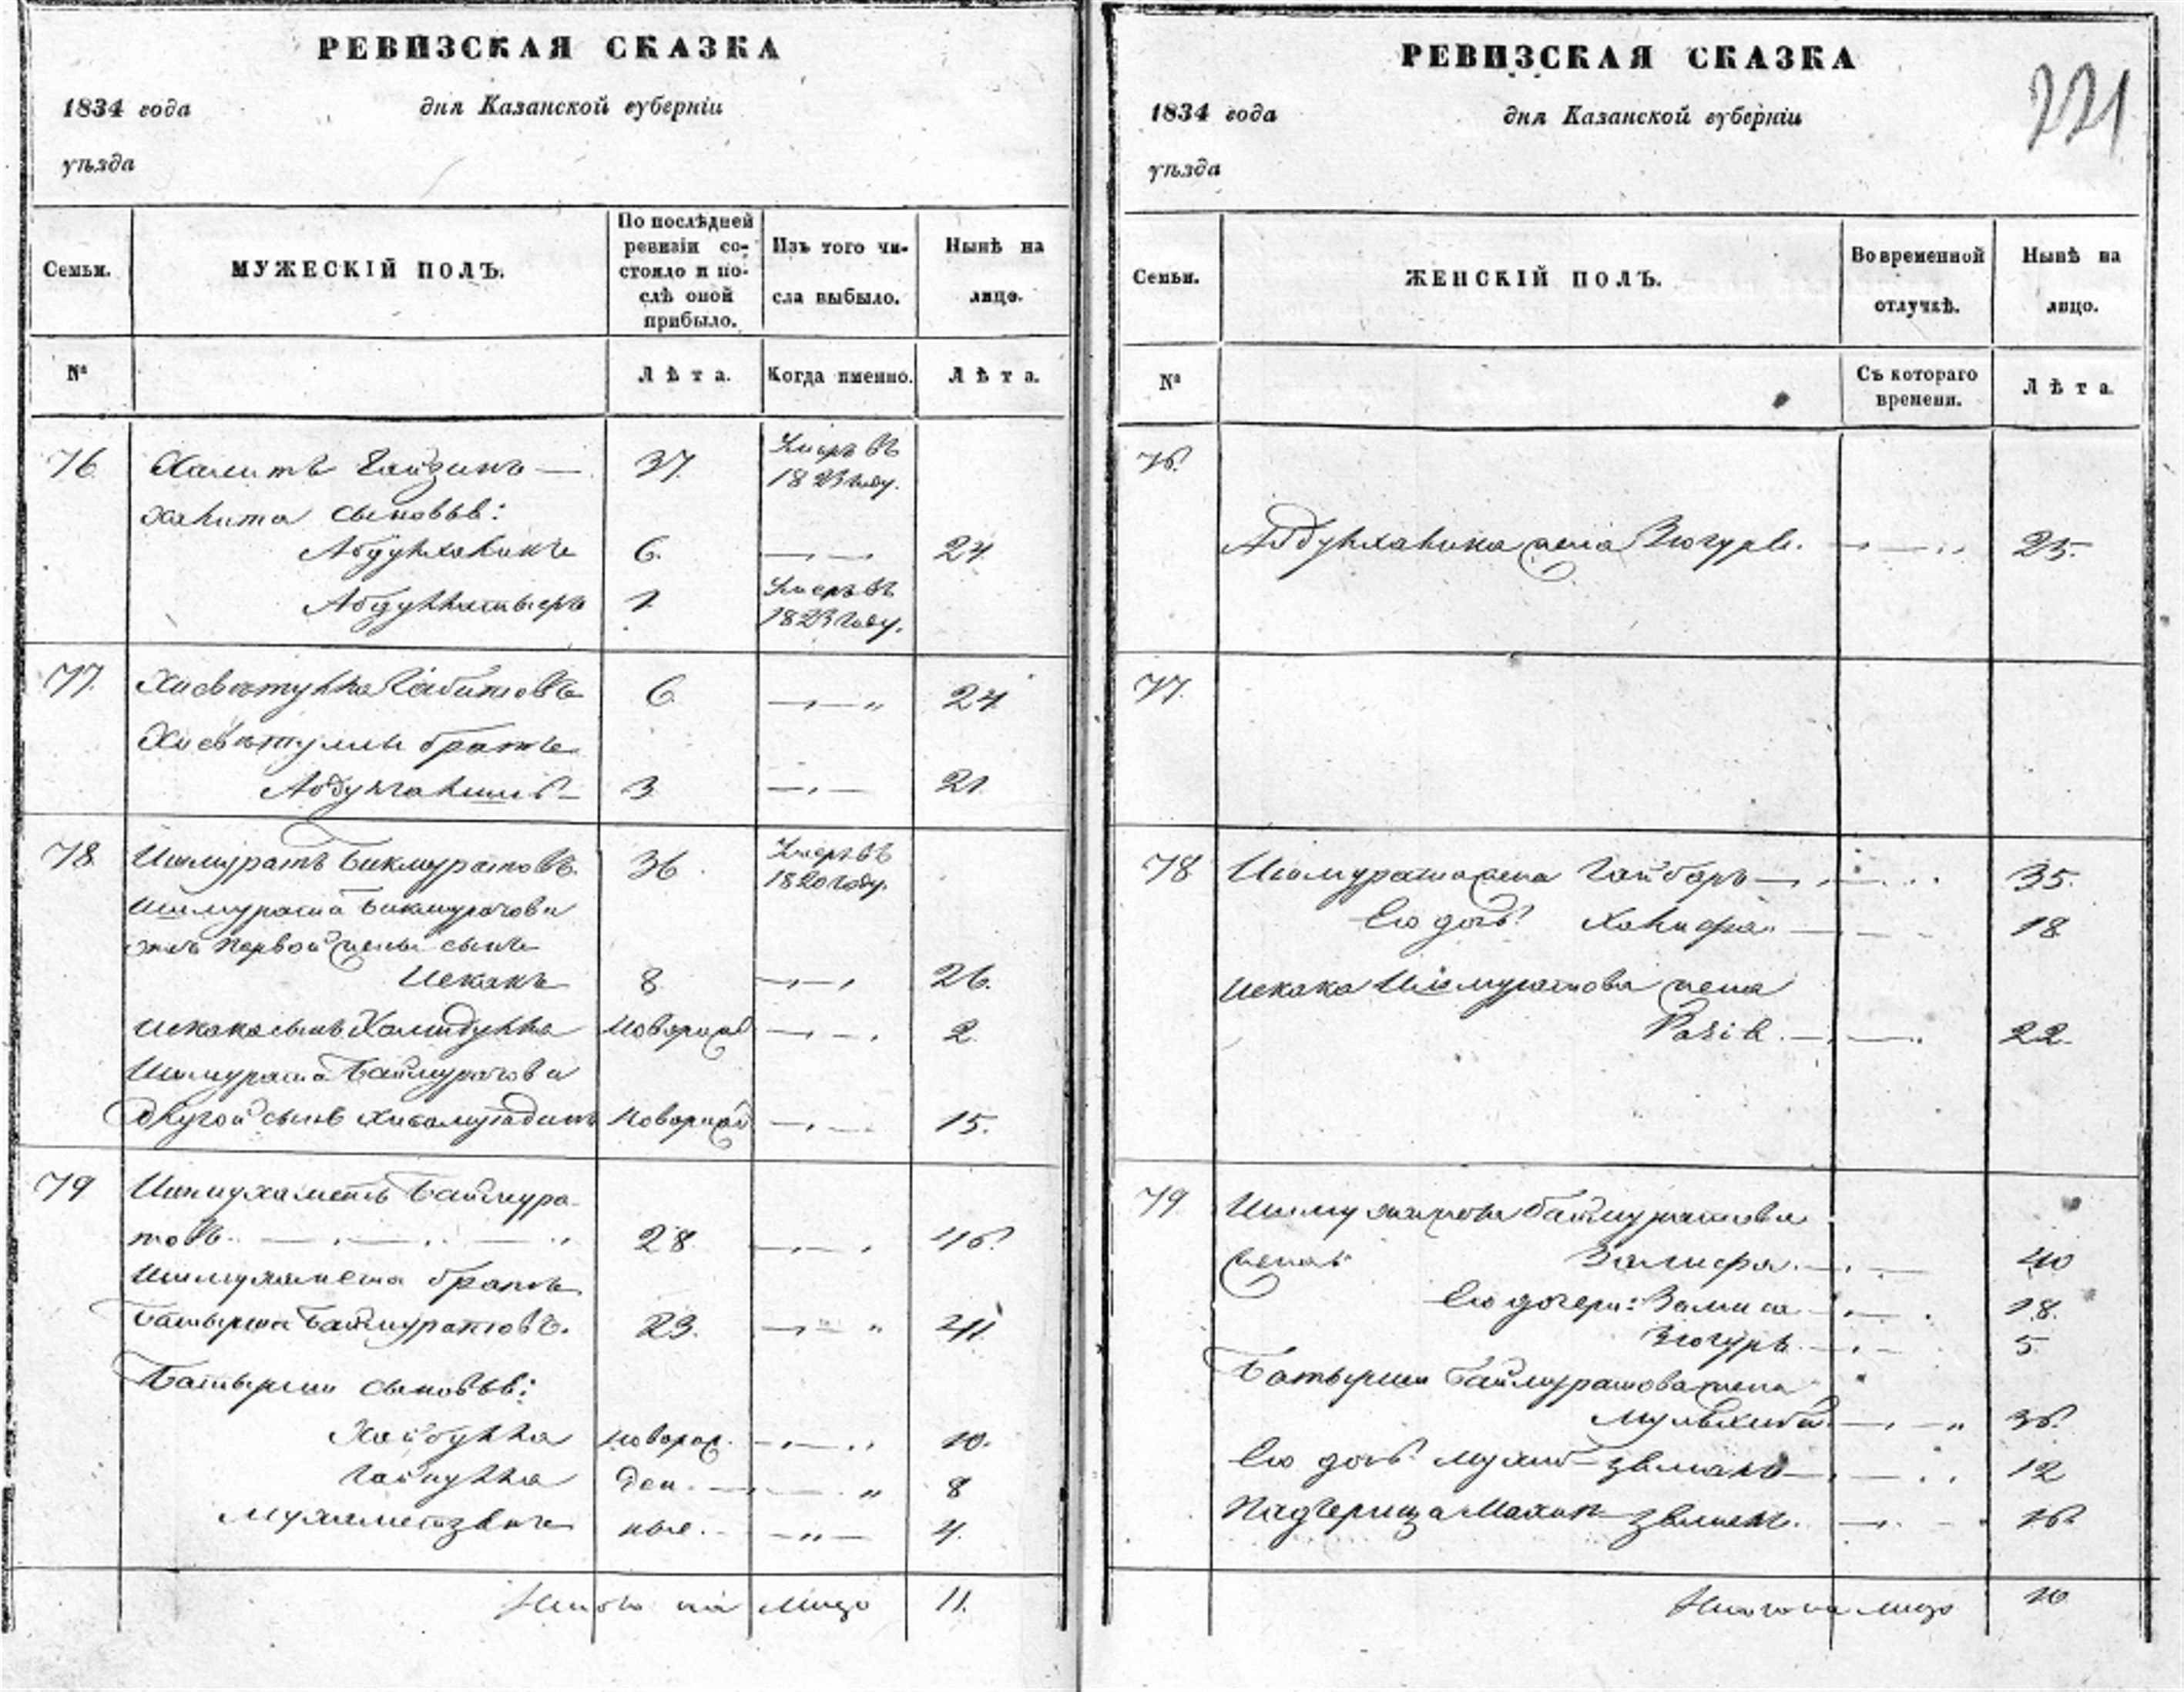 РЕВИЗСКАЯ СКАЗКА
1834 года дня Казанской губерніи
уѣзда
Семьи. МУЖЕСКІЙ ПОЛЪ. По послѣдней ревизіи состояло и послѣ оной прибыло. Изъ того числа выбыло. Нынѣ на лицо.
№ Лѣта. Когда именно. Лѣта.
76 Халитъ 37. Умеръ въ 1823 году.
Халита сыновья:
Абдулхаликъ 6. 24
Абдулкатыръ 1. Умеръ въ 1823 году.
77. Габитовъ 6. 24
братъ
3 21
78. Ишмуратъ Бикмуратовъ. 36. Умеръ въ 1820 году.
Ишмурата Бикмуратова
отъ первой жены сынъ
Искакъ 8. 26.
Искака сынъ Халитулла Новорож 2.
Ишмурата Баймуратова
другой сынъ Новорож 15.
79 Ишмухаметъ Баймура-
товъ. 28. 46.
Ишмухамета братъ
Батырша Баймуратовъ. 23. 41.
Батырши сыновья:
Хайбулла новорож- 10.
Гайнулла ден- 8
ные. 4.
Итого на лицо 11.
РЕВИЗСКАЯ СКАЗКА
221
1834 года дня Казанской губерніи
уѣзда
Семьи. ЖЕНСКІЙ ПОЛЪ. Во временной отлучкѣ. Нынѣ на лицо.
№ Съ котораго времени. Лѣта.
76.
Абдулхалика жена Зюгуря. 25.
77.
78 Ишмурата жена 35.
Его дочь: Ханифа 18
Искака Ишмуратова жена
22.
79 Ишмухамета Баймуратова
жена 40
Его дочери: 18.
Зюгуря 5.
Батырши Баймуратова жена
36.
Его дочь 12
Падчерица 16.
Итого на лицо 10